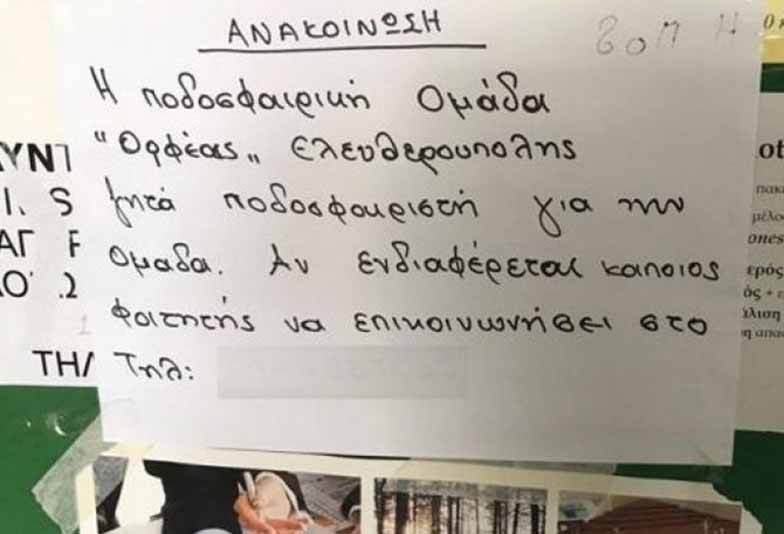 ΑΝΑΚΟΙΝΩΣΗ
Η ποδοσφαιρική Ομάδα
"Ορφέας„ Ελευθερουπολης
ζητά ποδοσφαιριστή για την
ομαδα. Αν ενδιαφέρεται καποιος
φοιτητής να επικοινωνήσει στο
Τηλ:
ΥΝΤ
Ι. S
ΑΓ F
.2
ΤΗΛ
ot
μέλο
ones
ερός
ός +
άλιση
η απα